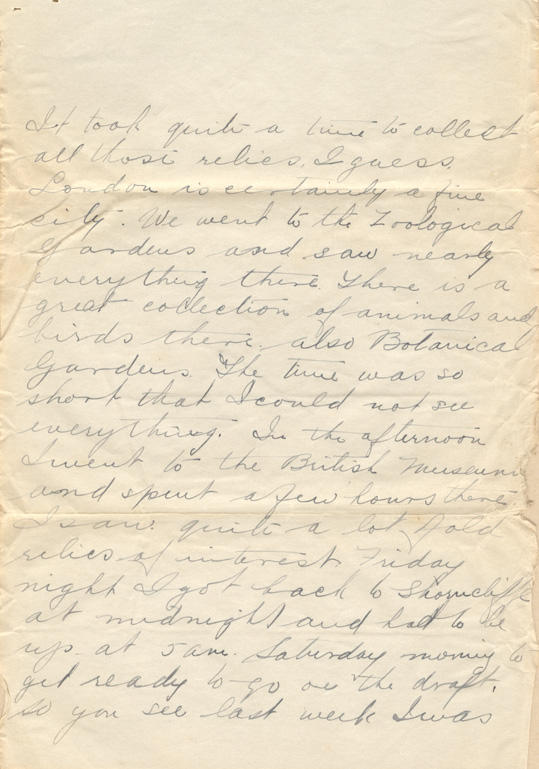 It took quite a time to collect
all those relics, I guess.
London is certainly a fine
city. We went to the Zoological
Gardens and saw nearly
everything there. There is a
great collection of animals and
birds there. also Botanical
Gardens. The time was so
short that I could not see
everything. In the afternoon
I went to the British Museum
and spent a few hours there.
I saw quite a lot of old
relics of interest. Friday
night I got back to Shorncliffe
at midnight and had to be
up at 5 am. Saturday morning to
get ready to go on the draft.
So you see last week I was